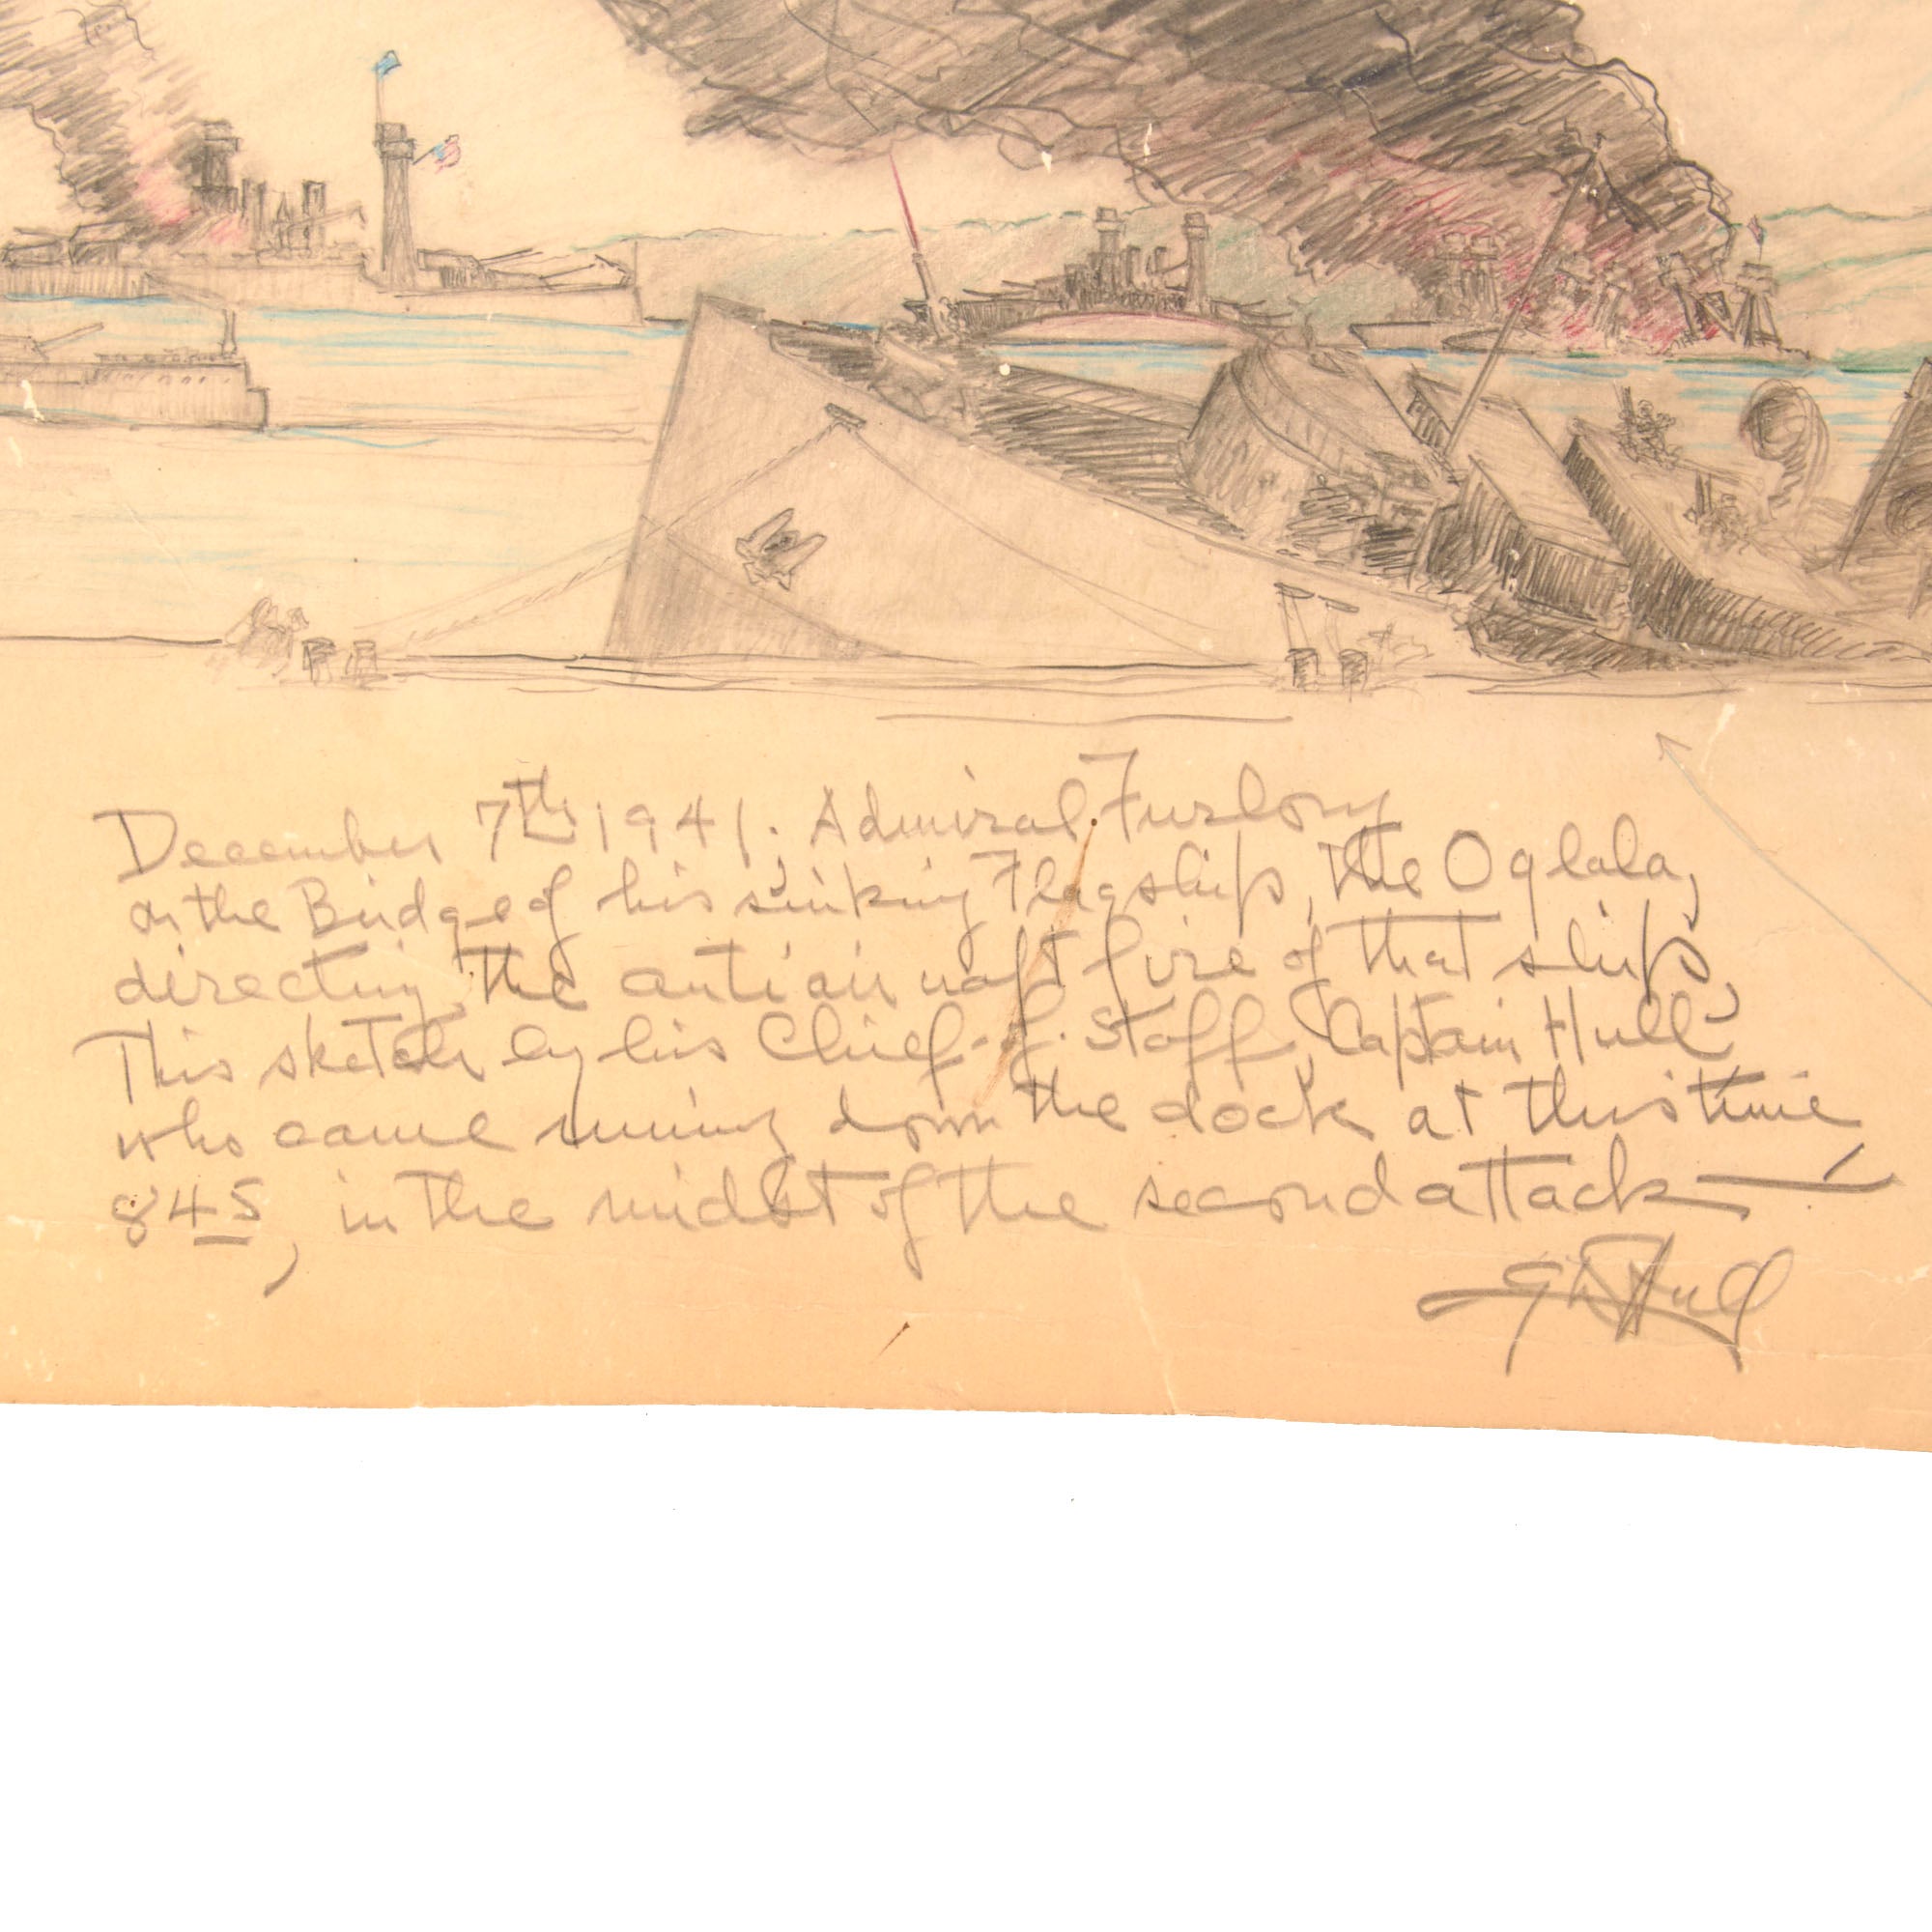 December 7th 1941. Admiral Furlong
on the Bridge of his sinking Flagship, the Oglala,
directing the antiaircraft fire of that ship,
This sketch by his Chief-of-Staff, Captain Hull
who came running down the dock at this time
845, in the midst of the second attack—
Hull